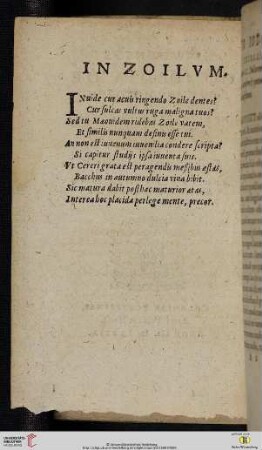 IN ZOILVM.
INuide cur acuis ringendo Zoile dentes?
Cur sulcat vultus ruga maligna tuos?
Sed tu Maonidem ridebas Zoile vatem,
Et similis nunquam desinis esse tui.
An non est iuuenum iuuenilia condere scripta?
Si capitur studijs ipsa iuuenta suis.
Vt Cereri grata est peragendis messibus æstas,
Bacchus in autumno dulcia vina bibit.
Sic matura dabit posthac maturior ætas,
Interea hoc placida perlege mente, precor.
UNIVERSITÄTS-
BIBLIOTHEK
HEIDELBERG
© Universitätsbibliothek Heidelberg